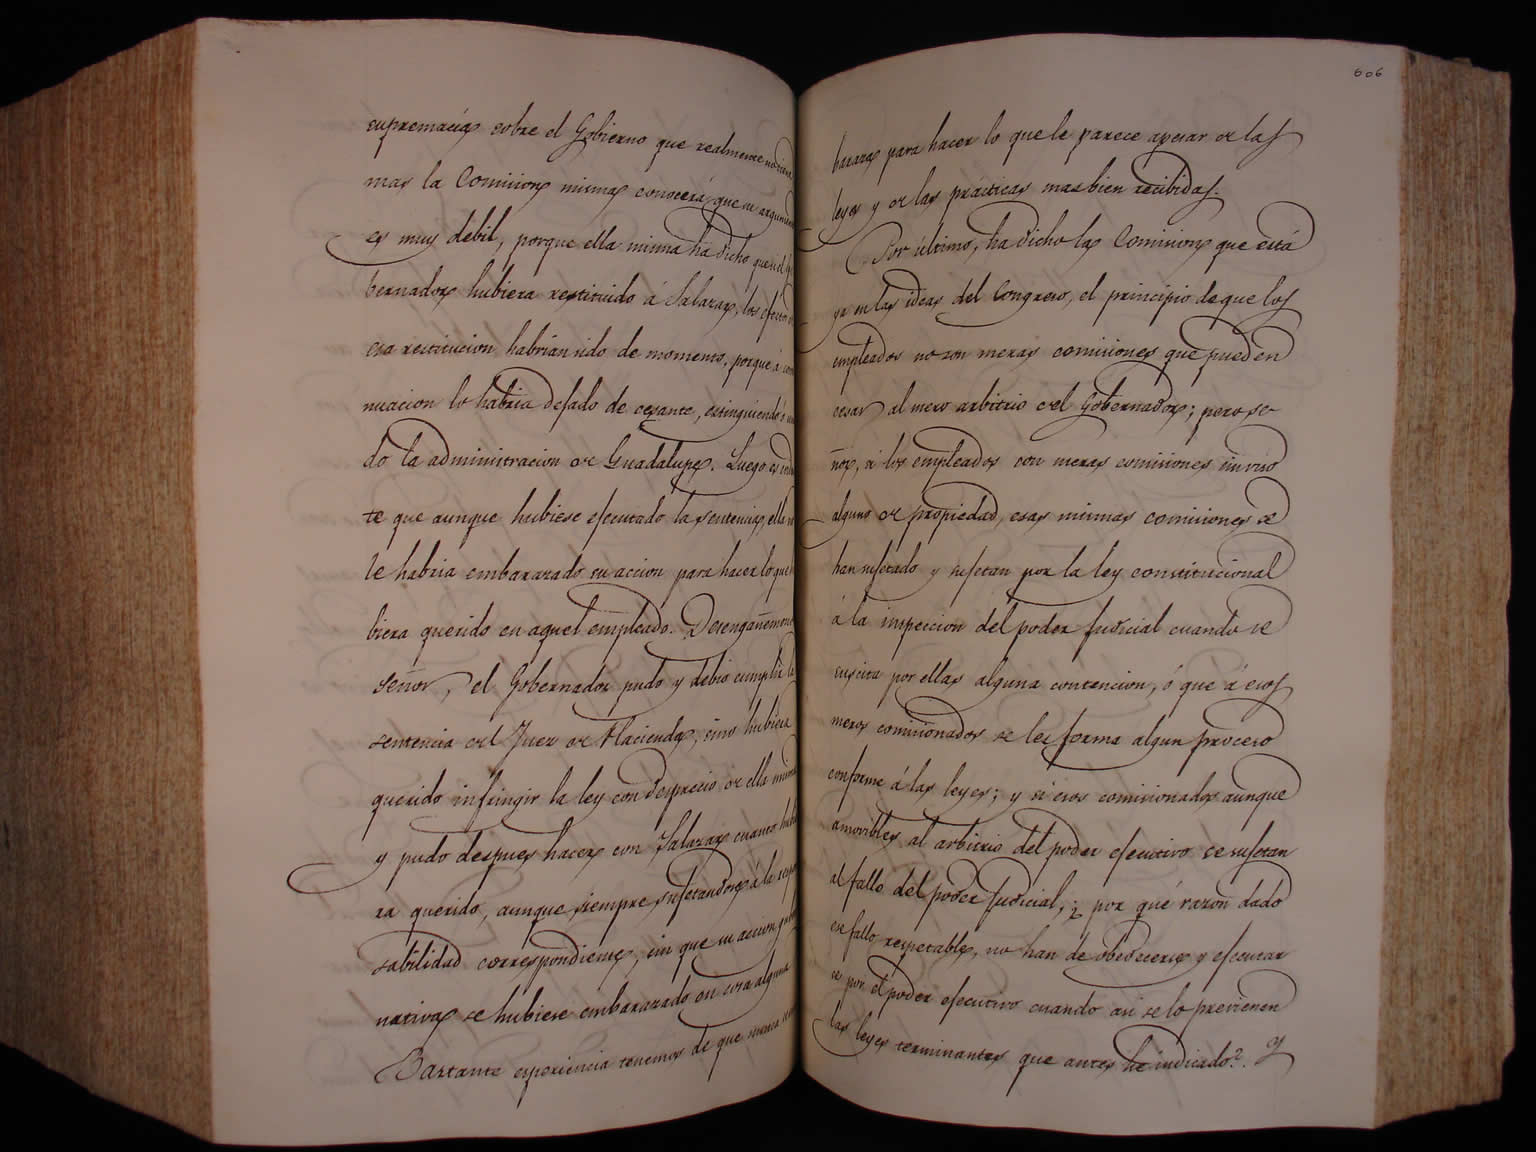 supremacía sobre el Gobierno que realmente no tiene
mas la Comision misma conocerá que su argumento
es muy debil, porque ella misma ha dicho que si el Go
bernador hubiera restituido á Salazar, los efectos de
esa restitucion habrian sido de momento, porque á conti
nuacion lo habria dejado de cesante, estinguiendo
do la administracion de Guadalupe. Luego es
te que aunque hubiese ejecutado la sentencia, ella no
le habria embarazado su accion para hacer lo que hu
biera querido en aquel empleado. Desengañemonos
señor, el Gobernador pudo y debio cumplir la
sentencia del Juez de Hacienda, sino hubiera
querido infringir la ley con desprecio de ella misma
y pudo despues hacer con Salazar cuanto hubie
ra querido, aunque siempre sujetandose á la respon
sabilidad correspondiente, sin que su accion guber
nativa se hubiese embarazado en cosa alguna
Bastante esperiencia tenemos de que nunca se
606
baraza para hacer lo que le parece apesar de las
leyes y de las prácticas mas bien recibidas.
Por último, ha dicho la Comision que está
ya en las ideas del Congreso, el principio de que los
empleados no son meras comisiones que pueden
cesar al mero arbitrio del Gobernador; pero se
ñor, si los empleados son meras comisiones sin viso
alguno de propiedad, esas mismas comisiones se
han sujetado y sujetan por la ley constitucional
á la inspeccion del poder judicial cuando se
suscita por ellas alguna contencion, ó que á esos
meros comisionados se les forma algun proceso
conforme á las leyes; y si esos comisionados aunque
amovibles al arbitrio del poder ejecutivo se sujetan
al fallo del poder judicial, ¿por qué razon dado
ese fallo respetable, no han de obedecerse y ejecutar
se por el poder ejecutivo cuando asi se lo previenen
las leyes terminantes que antes he indicado?. Y